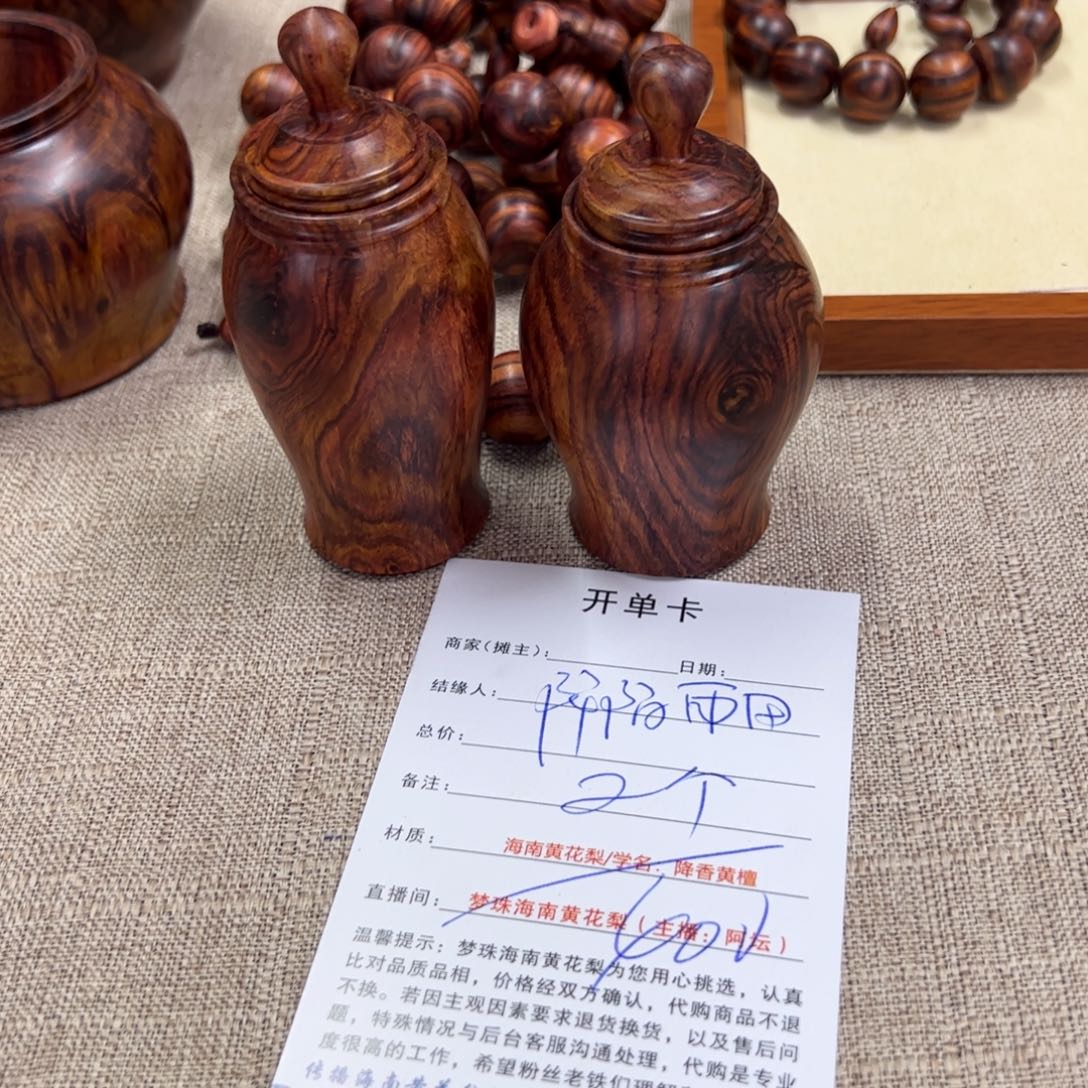 开单卡
商家(摊主): 日期:
结缘人: 雨田
总价:
备注: 2个
材质: 海南黄花梨/学名:降香黄檀
直播间: 梦珠海南黄花梨(主播:阿坛)
温馨提示:梦珠海南黄花梨为您用心挑选,认真
比对品质品相,价格经双方确认,代购商品不退
不换。若因主观因素要求退货换货,以及售后问
题,特殊情况与后台客服沟通处理,代购是专业
度很高的工作,希望粉丝老铁们理解
传播海南黄花